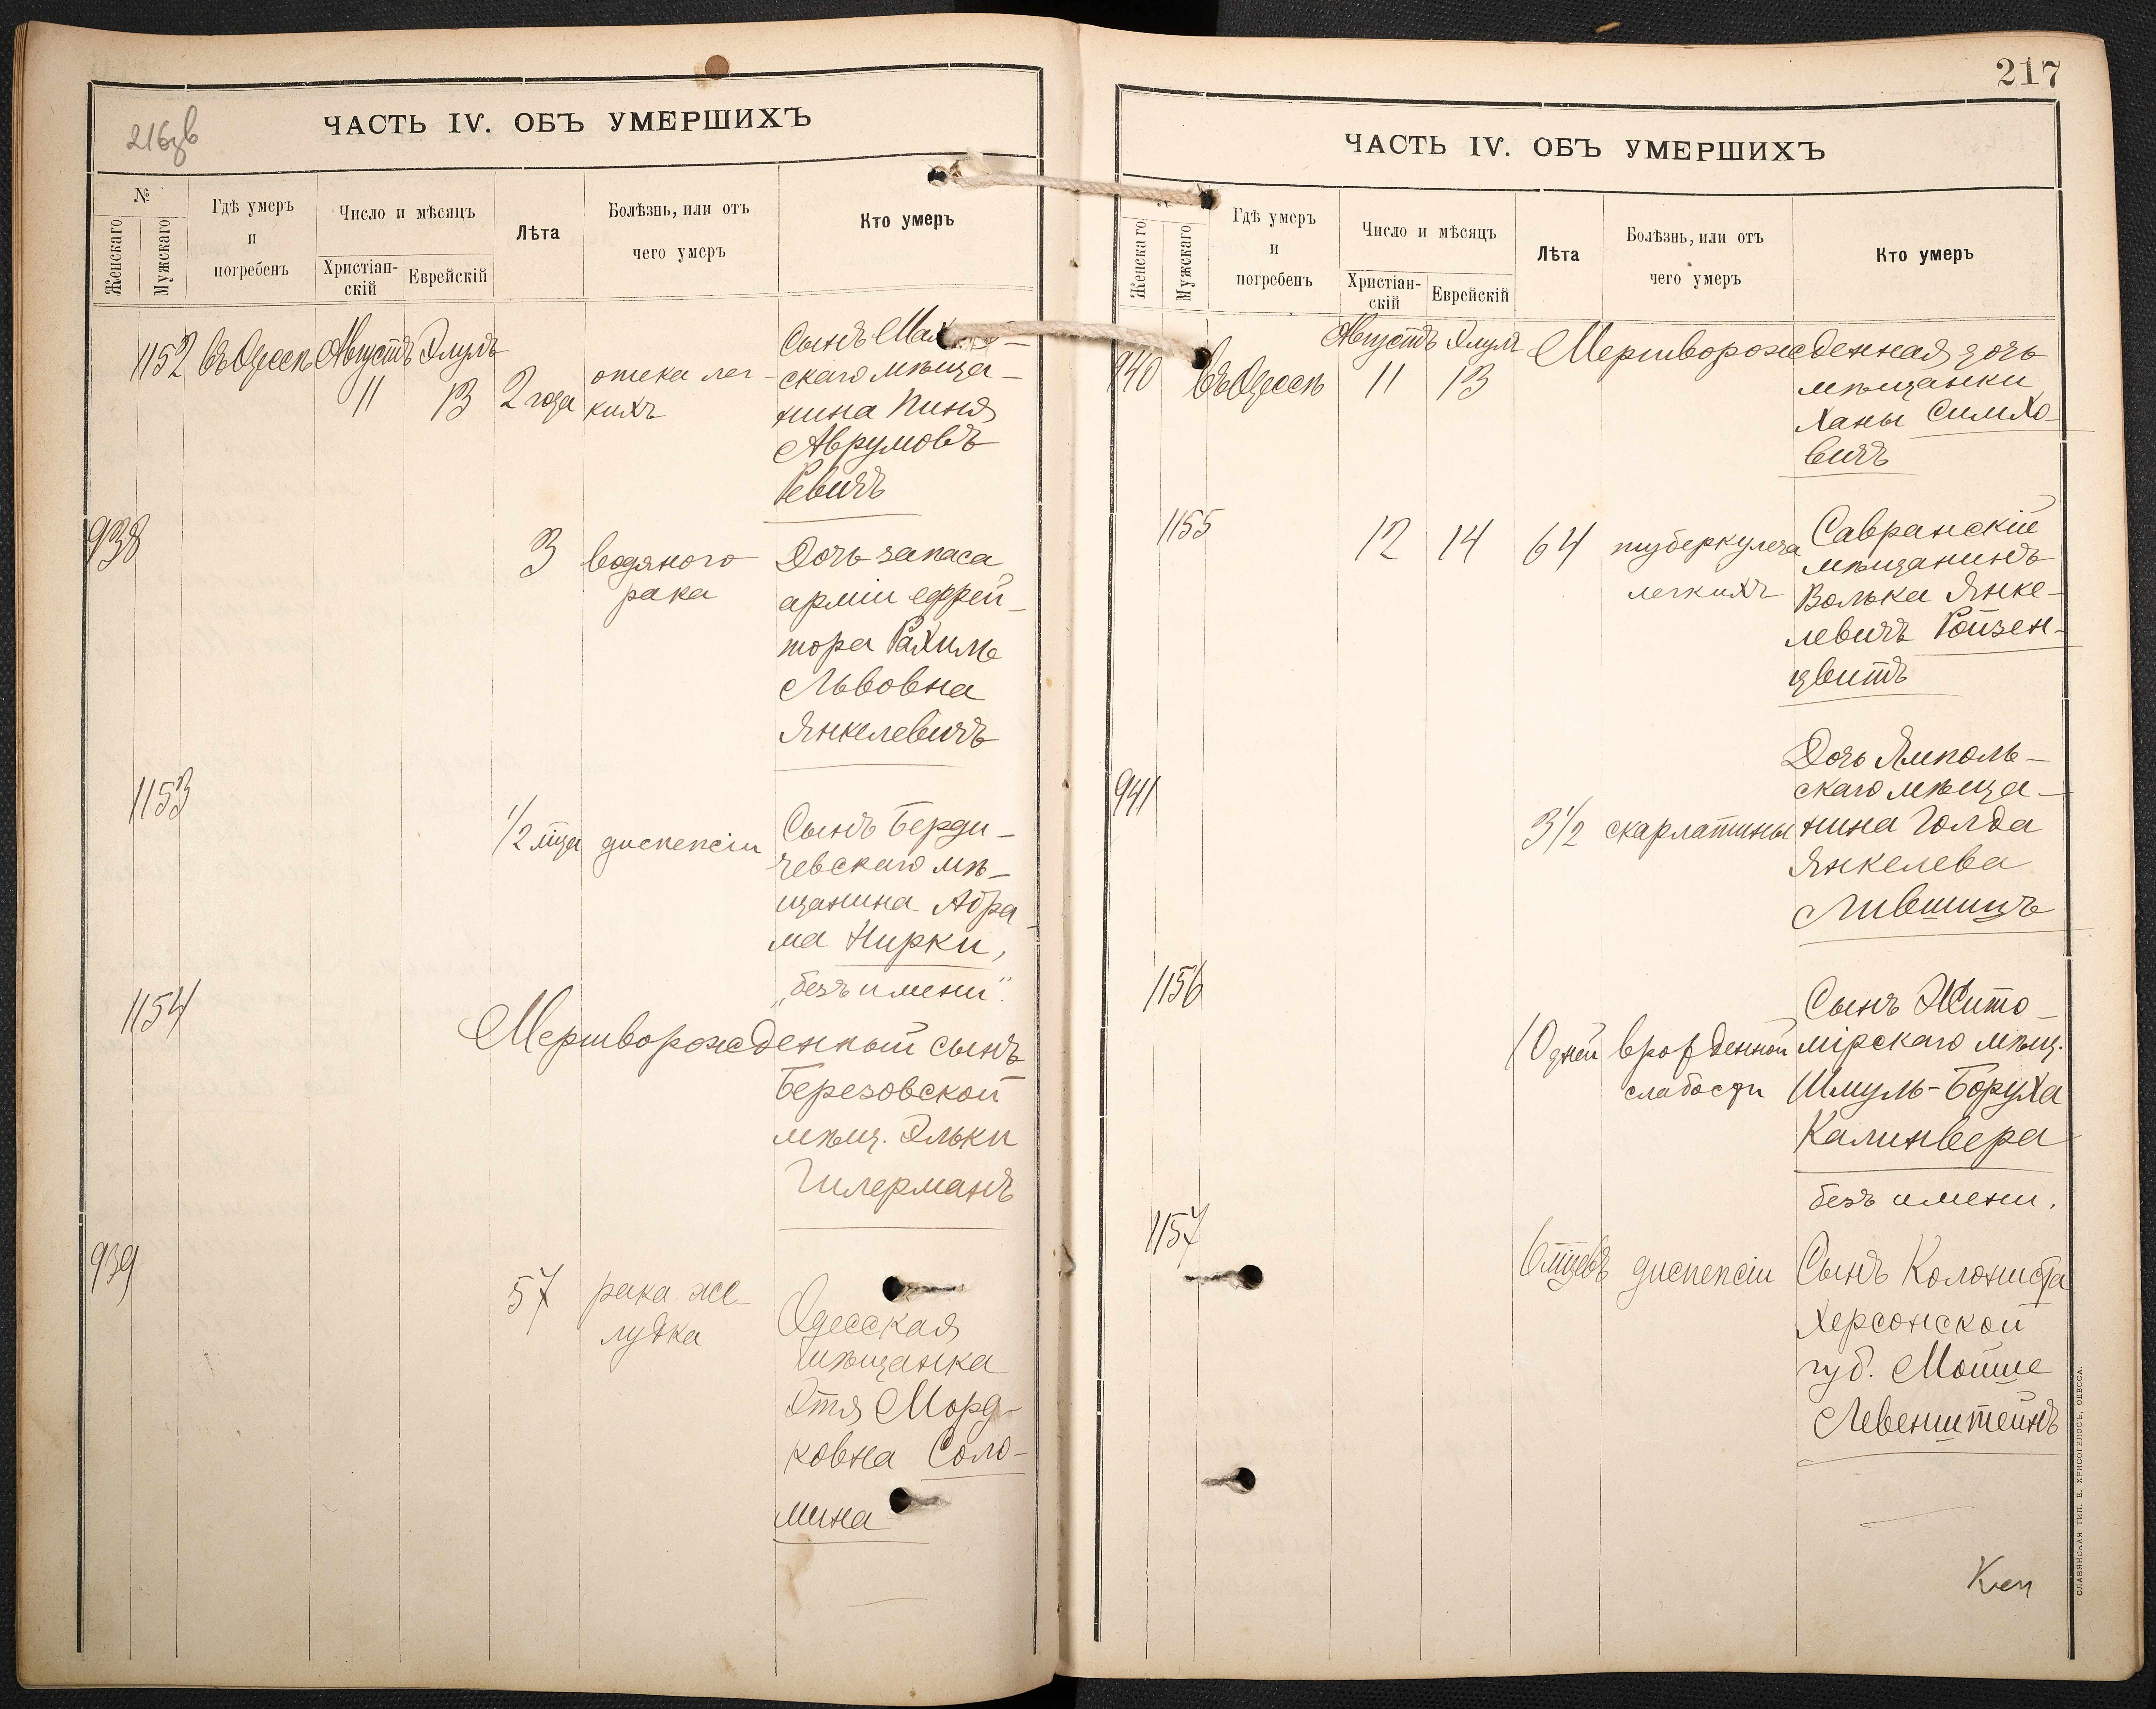 216зв
ЧАСТЬ IV. ОБЪ УМЕРШИХЪ
№
Женскаго
Мужскаго
Гдѣ умеръ
и
погребенъ
Число и мѣсяцъ
Христіан-
скій
Еврейскій
Лѣта
Болѣзнь, или отъ
чего умеръ
Кто умеръ
1152 въ Одессѣ Августъ Элулъ
11 13 2 года
отека лег-
кихъ
Сынъ
скаго мѣща-
нина Пиня
Аврумовъ
Ревичъ
938
3 водяного
рака
Дочь запаса
арміи ефрей-
тора Рахиль
Львовна
Янкелевичъ
1153
1/2 мца диспепсіи
Сынъ Берди-
чевскаго мѣ-
щанина Абра-
ма Нирки,
„безъ имени".
1154
Мертворожденный сынъ
Березовской
мѣщ. Эльки
Гилерманъ
939
57 рака же-
лудка
Одесская
мѣщанка
Этя Морд-
ковна Соло-
мина
217
ЧАСТЬ IV. ОБЪ УМЕРШИХЪ
Женскаго
Мужскаго
Гдѣ умеръ
и
погребенъ
Число и мѣсяцъ
Христіан-
скій
Еврейскій
Лѣта
Болѣзнь, или отъ
чего умеръ
Кто умеръ
940 въ Одессѣ Августъ Элулъ
11 13
Мертворожденная дочь
мѣщанки
Ханы Симхо-
вичъ
1155
12 14 64 туберкулеза
легкихъ
Савранскій
мѣщанинъ
Волька Янке-
левичъ Ройзен-
цвитъ
941
3 1/2 скарлатины
Дочь Ямполь-
скаго мѣща-
нина Голда
Янкелева
Лившицъ
1156
10 дней врожденной
слабости
Сынъ Жито-
мірскаго мѣщ.
Шмуль-Боруха
Калинвера
безъ имени.
1157
6 мцевъ диспепсіи
Сынъ Колониста
Херсонской
губ. Мойше
Левенштейнъ
СЛАВЯНСКАЯ ТИП. Е. ХРИСОГЕЛОСЪ, ОДЕССА.